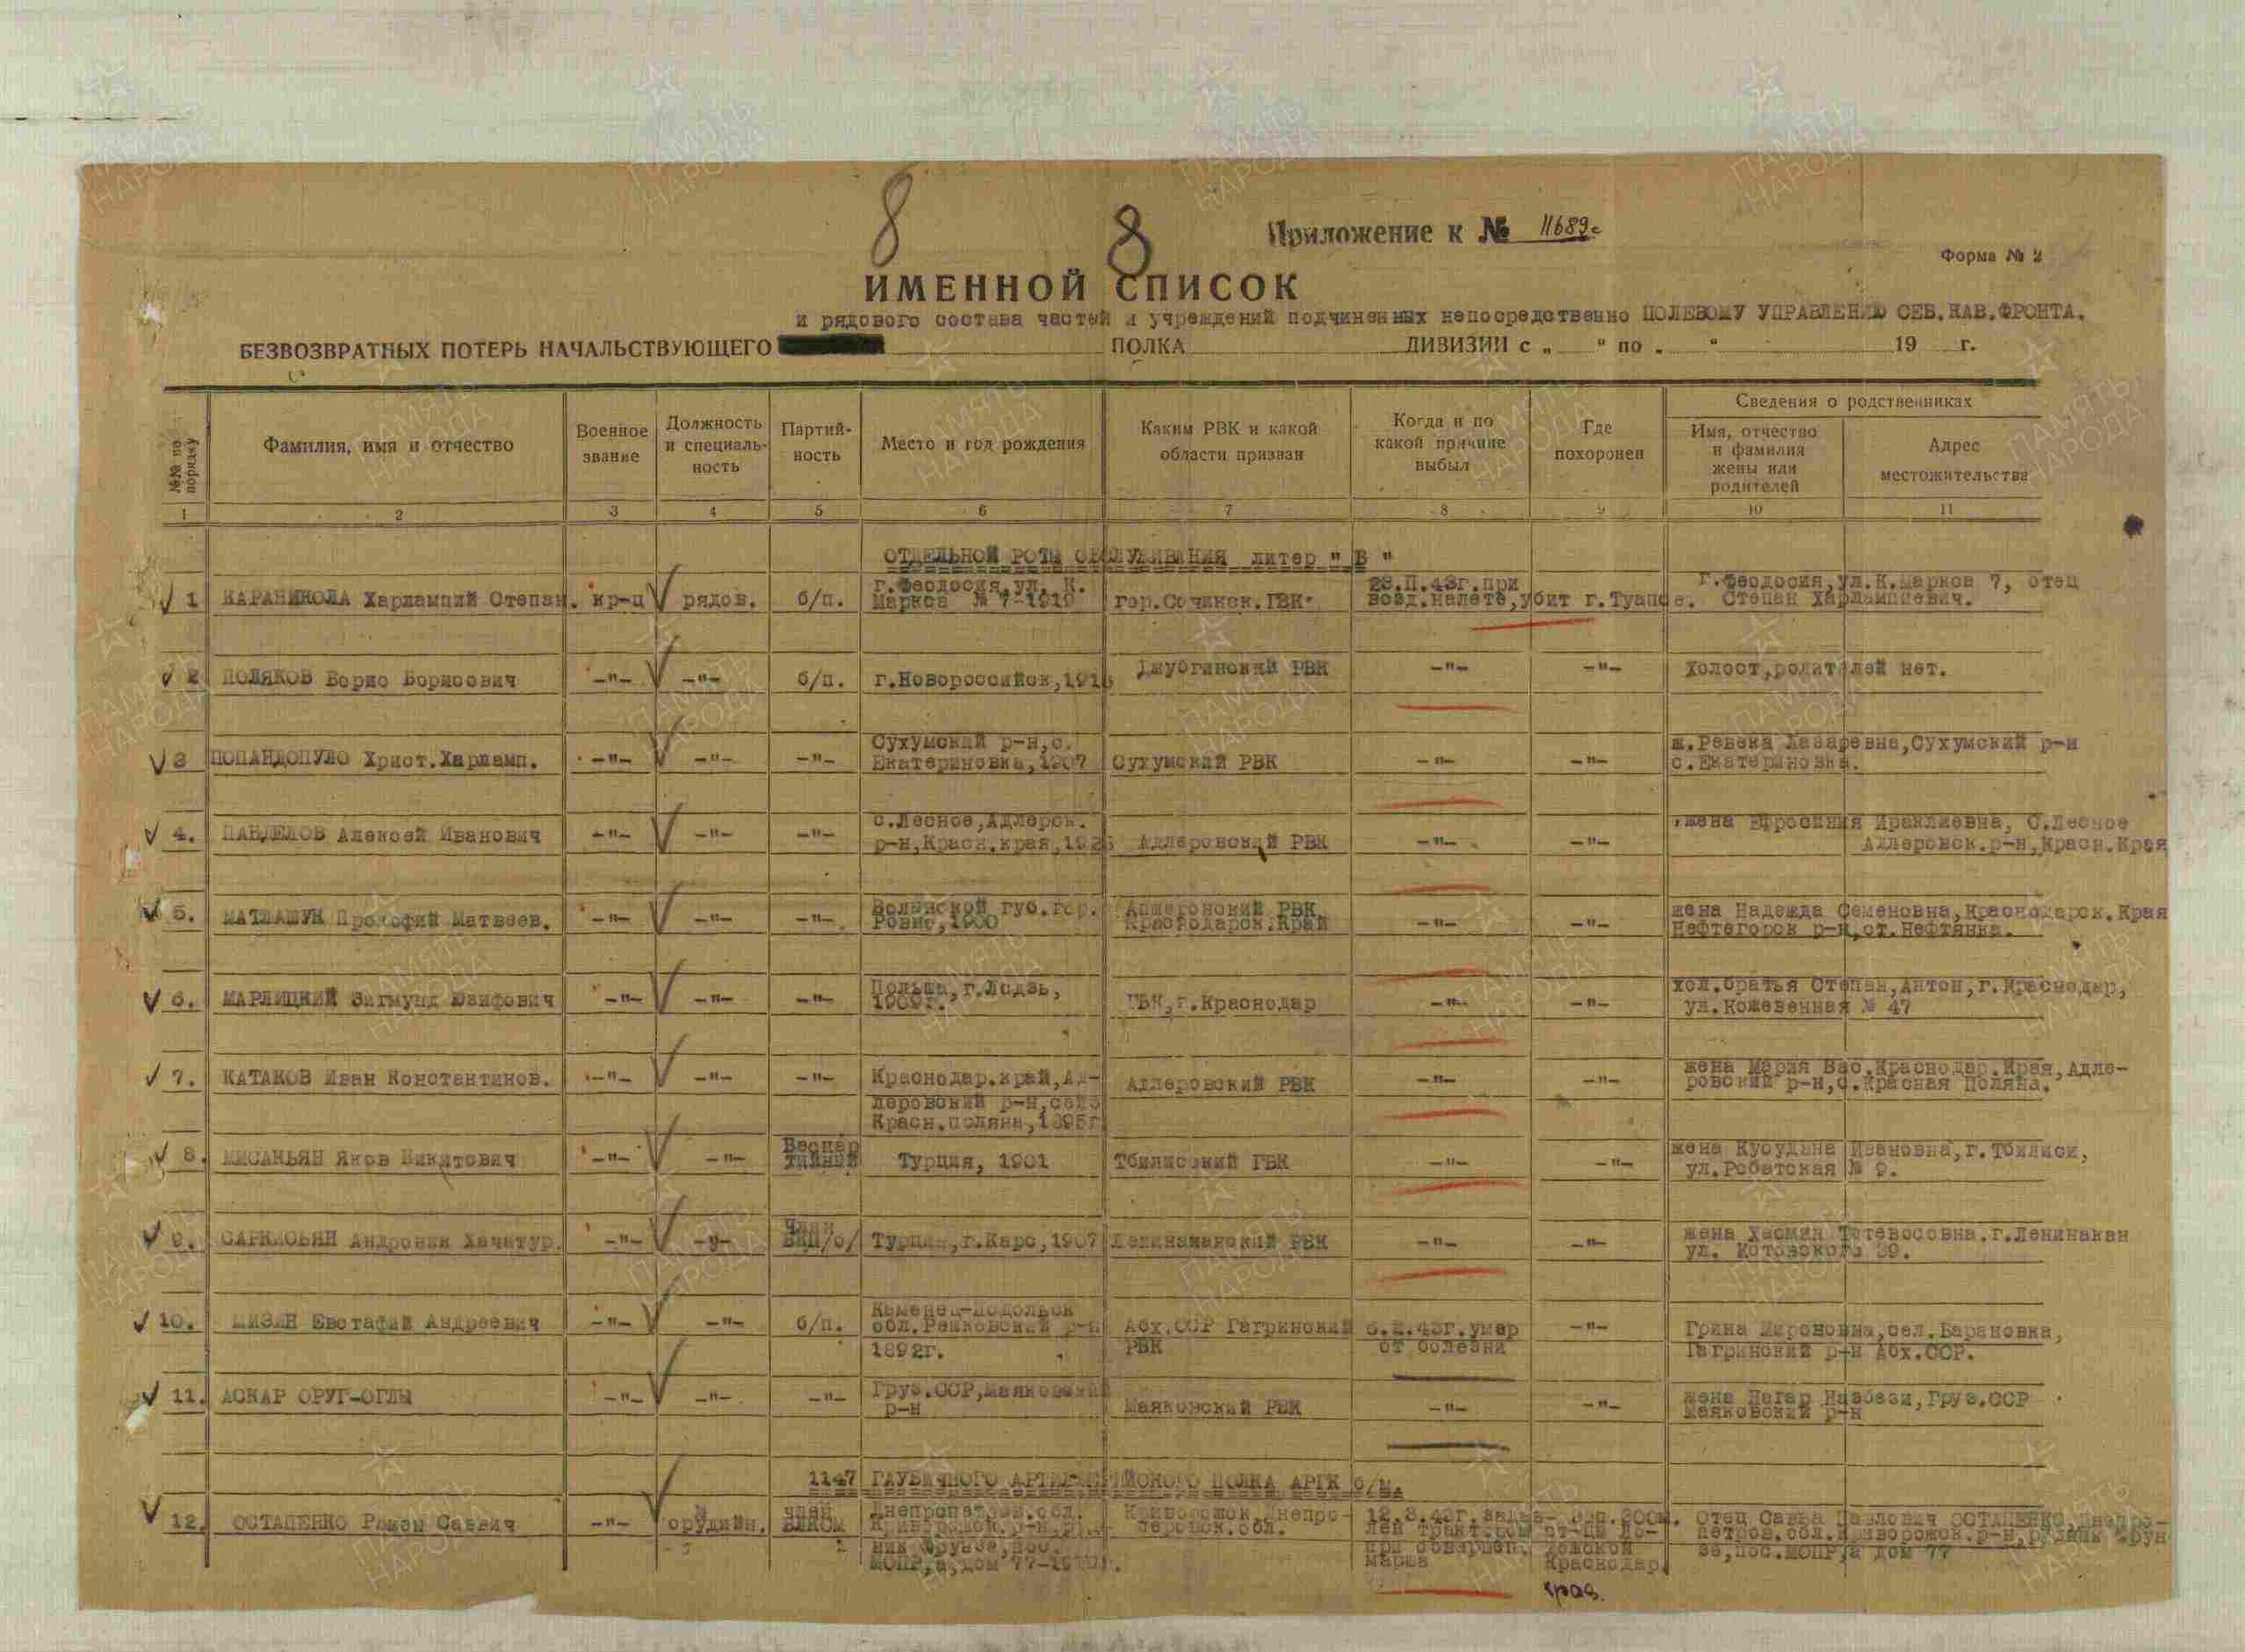 8
8
Приложение к № 11689с
Форма № 2
ИМЕННОЙ СПИСОК
и рядового состава частей и учреждений подчиненных непосредственно ПОЛЕВОМУ УПРАВЛЕНИЮ СЕВ.КАВ.ФРОНТА.
БЕЗВОЗВРАТНЫХ ПОТЕРЬ НАЧАЛЬСТВУЮЩЕГО ПОЛКА ДИВИЗИИ с „ “ по „ “ 19 г.
№№ по порядку
Фамилия, имя и отчество
Военное звание
Должность и специаль-ность
Партий-ность
Место и год рождения
Каким РВК и какой области призван
Когда и по какой причине выбыл
Где похоронен
Сведения о родственниках
Имя, отчество и фамилия жены или родителей
Адрес местожительства
1 2 3 4 5 6 7 8 9 10 11
ОТДЕЛЬНОЙ РОТЫ ОБСЛУЖИВАНИЯ литер "Б"
1 КАРАНИКОЛА Харлампий Степан. кр-ц рядов. б/п. г.Феодосия,ул. К. Маркса № 7-1919 гор.Сочинск.ГВК 28.П.43г.при возд.налете,убит г.Туапсе. г.Феодосия,ул.К.Маркса 7, отец Степан Харлампиевич.
2 ПОЛЯКОВ Борис Борисович -"- -"- б/п. г.Новороссийск, Джубгинский РВК -"- -"- Холост,родителей нет.
3 ПОПАНДОПУЛО Христ.Харламп. -"- -"- -"- Сухумский р-н,с. Екатериновка,1907 Сухумский РВК -"- -"- ж.Ревека Лазаревна,Сухумский р-н с.Екатериновка.
4. ПАНДЕЛОВ Алексей Иванович -"- -"- -"- с.Лесное,Адлерск. р-н,Красн.края, Адлеровский РВК -"- -"- жена Ефросиния Ираклиевна, С.Лесное Адлеровск.р-н,Красн.Края
5. МАТЛАШУК Прокофий Матвеев. -"- -"- -"- Волынской губ.гор. Ровно,1900 Апшеронский РВК Краснодарск.Край -"- -"- жена Надежда Семеновна,Краснодарск.Края Нефтегорск р-н,ст.Нефтянка.
6. МАРЛИЦКИЙ Зигмунд Юзифович -"- -"- -"- Польша,г.Лодзь, 1909г. ГВК,г.Краснодар -"- -"- хол.братья Степан,Антон,г.Краснодар, ул.Кожевенная № 47
7. КАТАКОВ Иван Константинов. -"- -"- -"- Краснодар.край,Ад-леровский р-н,село Красн.поляна,1895г Адлеровский РВК -"- -"- жена Мария Вас.Краснодар.Края,Адле-ровский р-н,с.Красная Поляна.
8. МИСАКЬЯН Яков Никитович -"- -"- Беспар тийный Турция, 1901 Тбилисский ГВК -"- -"- жена Ивановна,г.Тбилиси, ул.Робатская № 9.
9. САРКИСЬЯН Андроник Хачатур. -"- -"- Член ВКП/б/ Турция,г.Карс,1907 Ленинаканский РВК -"- -"- жена Хасмик Татевосовна.г.Ленинакан ул. Котовского 39.
10. Евстафий Андреевич -"- -"- б/п. Каменец-Подольск обл. р-н 1892г. Абх.ССР Гагринский РВК 43г.умер от болезни -"- Мироновна,сел.Барановка, Гагринский р-н Абх.ССР.
11. АСКАР ОРУГ-ОГЛЫ -"- -"- -"- Груз.ССР,Маяковский р-н Маяковский РВК -"- -"- жена Нагар Груз.ССР Маяковский р-н
1147 ГАУБИЧНОГО АРТИЛЛЕРИЙСКОГО ПОЛКА АРГК б/м.
12. ОСТАПЕНКО Роман Саввич -"- орудийн. член ВЛКСМ Днепропетров.обл. Криворожск.р-н, ник Фрунзе,пос. МОПР,а,дом 77 Криворожск.Днепро-петровск.обл. 12.3.43г.задав-лен трактором при совершен. марша Краснодар. отец Савва Павлович ОСТАПЕНКО,Днепро-петров.обл.Криворожск.р-н,рудник Фрун-зе,пос.МОПР,а дом 77
края.